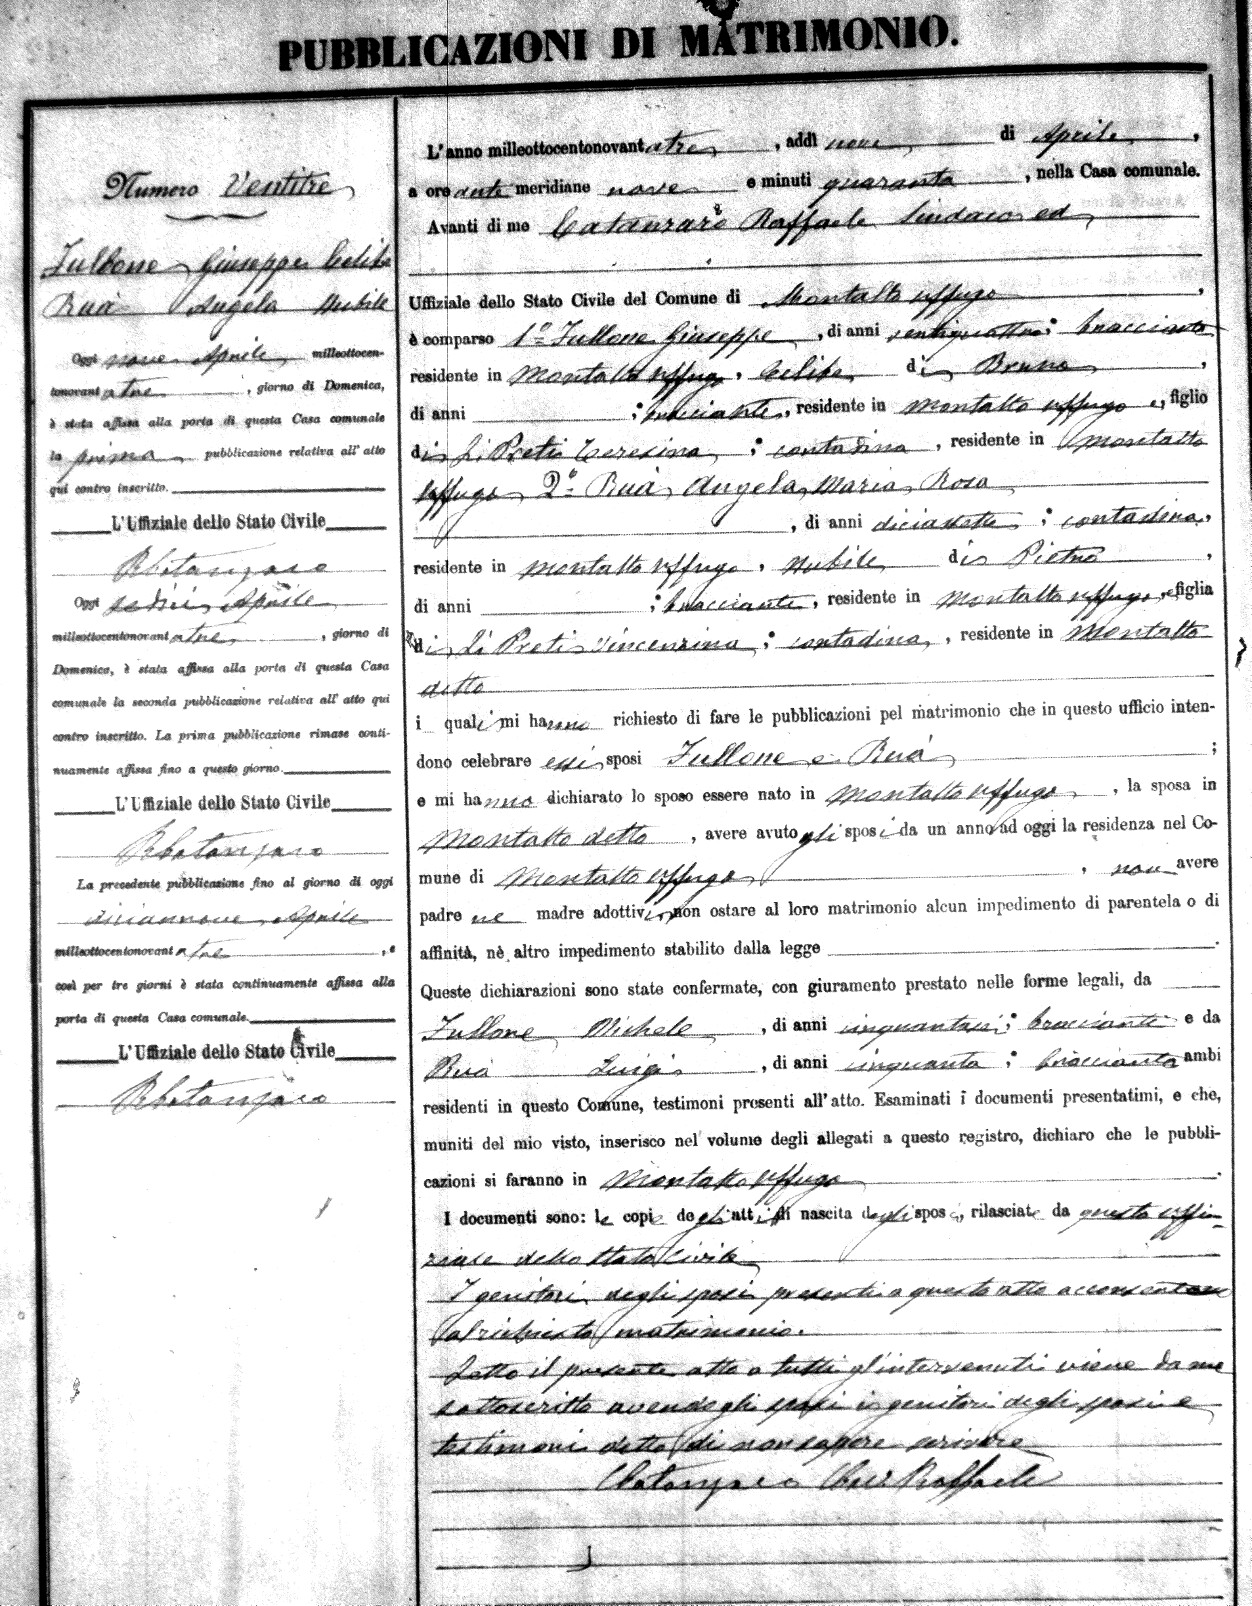 PUBBLICAZIONI DI MATRIMONIO.
Numero Ventitre
Fullone Giuseppe Celibe
Ruà Angela Nubile
Oggi nove Aprile milleottocen-
tonovantatre, giorno di Domenica,
è stata affissa alla porta di questa Casa comunale
la prima pubblicazione relativa all' atto
qui contro inscritto.
L'Uffiziale dello Stato Civile
RCatanzaro
Oggi sedici Aprile
milleottocentonovantatre, giorno di
Domenica, è stata affissa alla porta di questa Casa
comunale la seconda pubblicazione relativa all' atto qui
contro inscritto. La prima pubblicazione rimase conti-
nuamente affissa fino a questo giorno.
L'Uffiziale dello Stato Civile
RCatanzaro
La precedente pubblicazione fino al giorno di oggi
diciannove Aprile
milleottocentonovantatre, e
così per tre giorni è stata continuamente affissa alla
porta di questa Casa comunale.
L'Uffiziale dello Stato Civile
RCatanzaro
L'anno milleottocentonovantatre, addì nove di Aprile,
a ore ante meridiane nove e minuti quaranta, nella Casa comunale.
Avanti di me Catanzaro Raffaele Sindaco ed
Uffiziale dello Stato Civile del Comune di Montalto Uffugo,
è comparso 1º Fullone Giuseppe, di anni ventiquattro; bracciante
residente in Montalto Uffugo, Celibe di Bruno,
di anni ; bracciante, residente in Montalto Uffugo e, figlio
di Li Preti Teresina; contadina, residente in Montalto
Uffugo 2º Ruà Angela Maria Rosa
, di anni diciassette; contadina,
residente in Montalto Uffugo, nubile di Pietro,
di anni ; bracciante, residente in Montalto Uffugo, e figlia
di Li Preti Vincenzina; contadina, residente in Montalto
detto
i quali mi hanno richiesto di fare le pubblicazioni pel matrimonio che in questo ufficio inten-
dono celebrare essi sposi Fullone e Ruà;
e mi hanno dichiarato lo sposo essere nato in Montalto Uffugo, la sposa in
Montalto detto, avere avuto gli sposi da un anno ad oggi la residenza nel Co-
mune di Montalto Uffugo, non avere
padre ne madre adottivi, non ostare al loro matrimonio alcun impedimento di parentela o di
affinità, nè altro impedimento stabilito dalla legge.
Queste dichiarazioni sono state confermate, con giuramento prestato nelle forme legali, da
Fullone Michele, di anni cinquantasei; bracciante e da
Ruà Luigi, di anni cinquanta; bracciante ambi
residenti in questo Comune, testimoni presenti all'atto. Esaminati i documenti presentatimi, e che,
muniti del mio visto, inserisco nel volume degli allegati a questo registro, dichiaro che le pubbli-
cazioni si faranno in Montalto Uffugo.
I documenti sono: le copie degli atti di nascita degli sposi, rilasciate da questo uffi-
ziale dello Stato Civile
I genitori degli sposi presenti a questo atto acconsentono
al richiesto matrimonio.
Letto il presente atto a tutti gl'intervenuti viene da me
sottoscritto avendo gli sposi i genitori degli sposi e
testimoni detto di non sapere scrivere
Catanzaro Raffaele